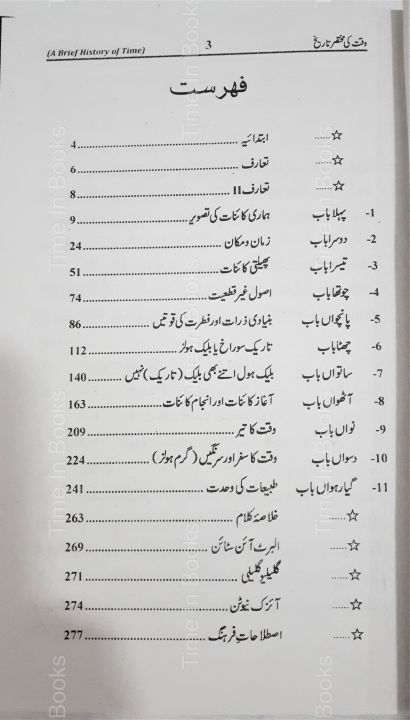 (A Brief History of Time) 3 وقت کی مختصر تاریخ
فہرست
☆...... ابتدائیہ 4
☆...... تعارف 6
☆...... تعارف II 8
1- پہلا باب ہماری کائنات کی تصویر 9
2- دوسرا باب زمان و مکان 24
3- تیسرا باب پھیلتی کائنات 51
4- چوتھا باب اصول غیر قطعیت 74
5- پانچواں باب بنیادی ذرات اور فطرت کی قوتیں 86
6- چھٹا باب تاریک سوراخ یا بلیک ہولز 112
7- ساتواں باب بلیک ہول اتنے بھی بلیک (تاریک) نہیں 140
8- آٹھواں باب آغاز کائنات اور انجام کائنات 163
9- نواں باب وقت کا تیر 209
10- دسواں باب وقت کا سفر اور سرنگیں (گرم ہولز) 224
11- گیارہواں باب طبیعات کی وحدت 241
☆...... خلاصۂ کلام 263
☆...... البرٹ آئن سٹائن 269
☆...... گلیلیو گلیلی 271
☆...... آئزک نیوٹن 274
☆...... اصطلاحات فرہنگ 277
Time In Books